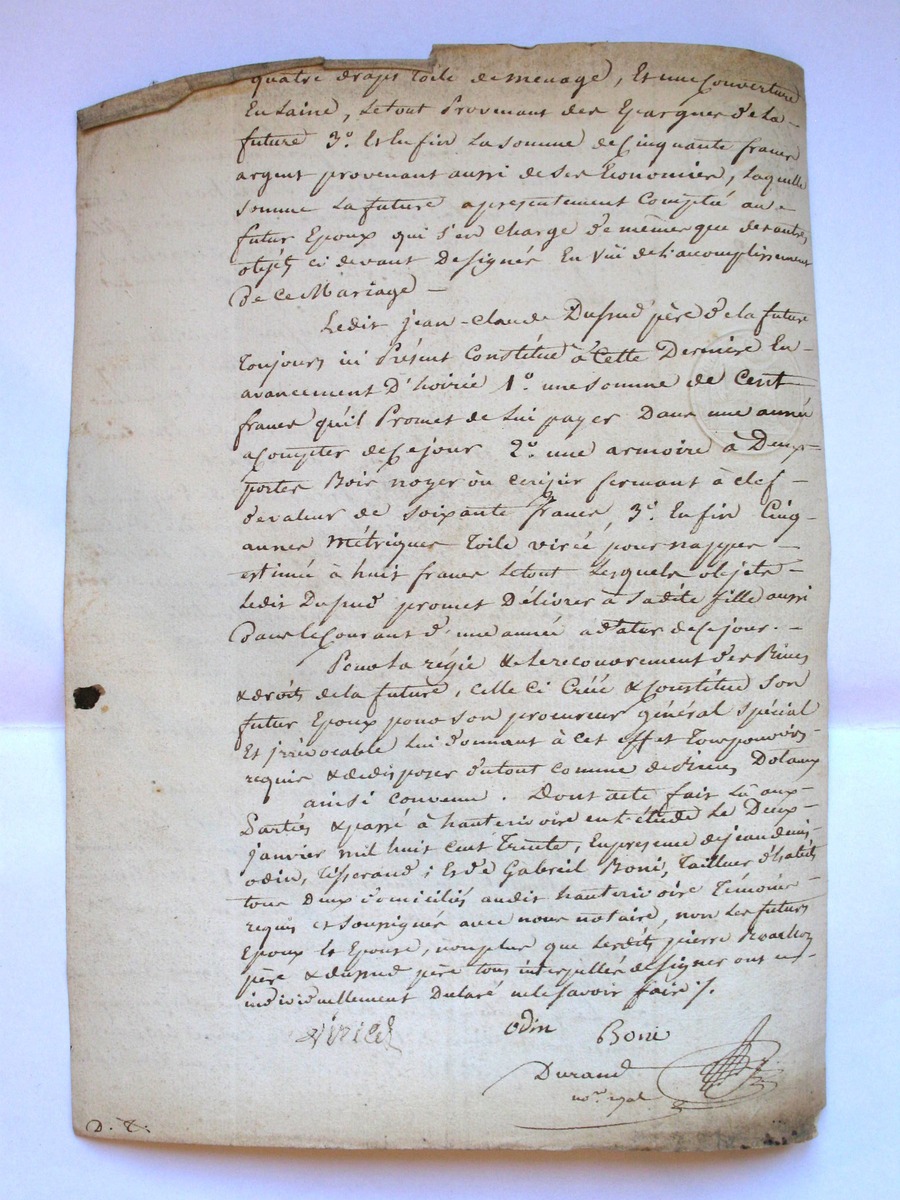 quatre draps toile de menage, Et une Couverture
En Laine, Letout Provenant des Epargnes de La-
future 3.º Et Enfin La somme de Cinquante francs
argent provenant aussi de ses Economies, Laquelle
somme La future a presentement Comptée au-
futur Epoux qui s'en Charge de mêmes que des autres
objets ci devant Designés En Vüe de L'acomplissement
De Ce Mariage -
Ledit jean-Claude père de la future
Toujours ici Présent Constitue à Cette Derniere En-
avancement D'hoirie 1.º une somme de Cent
francs qu'il Promet de Lui payer Dans une année
a Compter de Ce jour 2.º une armoire à Deux-
portes Bois noyer ou cerisier fermant à clef
de valeur de soixante francs, 3.º Enfin Cinq-
aunes Métriques Toile virée pour nappes -
estimée à huit francs Letout Lesquels objets -
Ledit promet Délivrer à sadite fille aussi
Dans le Courant d'une année a dater de Ce jour. -
Pour La régie & le recouvrement des Biens
& droits de la future, Celle Ci Créé & Constitue Son
futur Epoux pour son procureur général spécial
Et irrévocable Lui donnant à cet effet Tous pouvoirs
requis & de disposer du tout comme de Biens Dotaux
ainsi convenu. Dont acte fait Lu aux-
Parties & passé à hauterivoire en L'étude Le Deux-
janvier mil huit Cent Trente, En presence de jean denis
odin, Tisserand; Et de Gabriel Boni, Tailleur d'habits
tous Deux domiciliés audit hauterivoire Témoins
requis et soussignés avec nous notaire, non Les futurs
Epoux Et Epouse, non plus que Lesdits pierre
père & père tous interpellés de signer ont
individuellement Déclaré ne le savoir faire ./.
odin Boni
Durand
no.re
D. T.